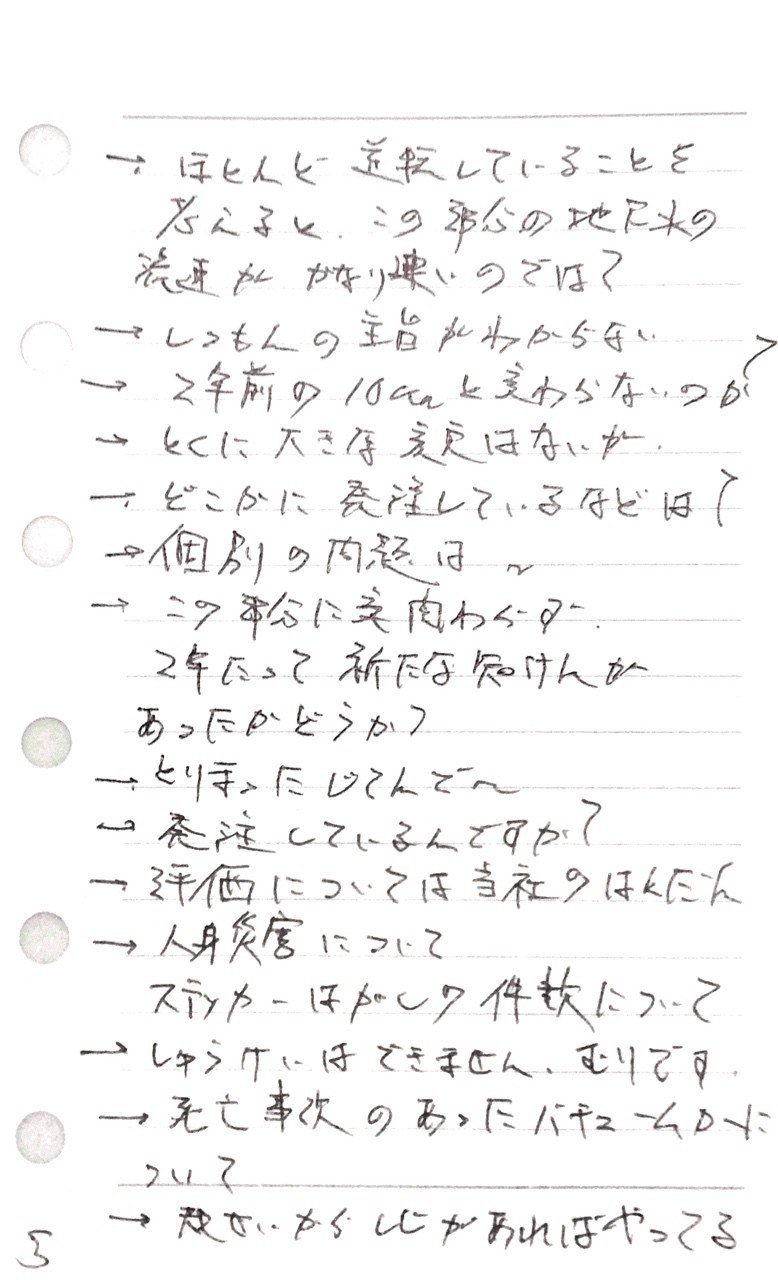 → ほとんど逆転していることを
考えると、この部分の地下水の
流速が かなり速いのでは?
→ しつもんの主旨がわからない
→ 2年前の10cmと変わらないのか?
→ とくに大きな変更はないが、
→ どこかに発注しているなどは?
→ 個別の内題は 〜
→ この部分に 肉わらず、
2年たって新たな知けんが
あったかどうか?
→ とりまったじてんで〜
→ 発注しているんですか?
→ 評価については当社のはんだん
→ 人身災害について
ステッカーはがしの件数について
→ しゅうけいはできません、むりです。
→ 死亡事故のあったバキュームカーに
ついて
→ せいから があればやってる
5